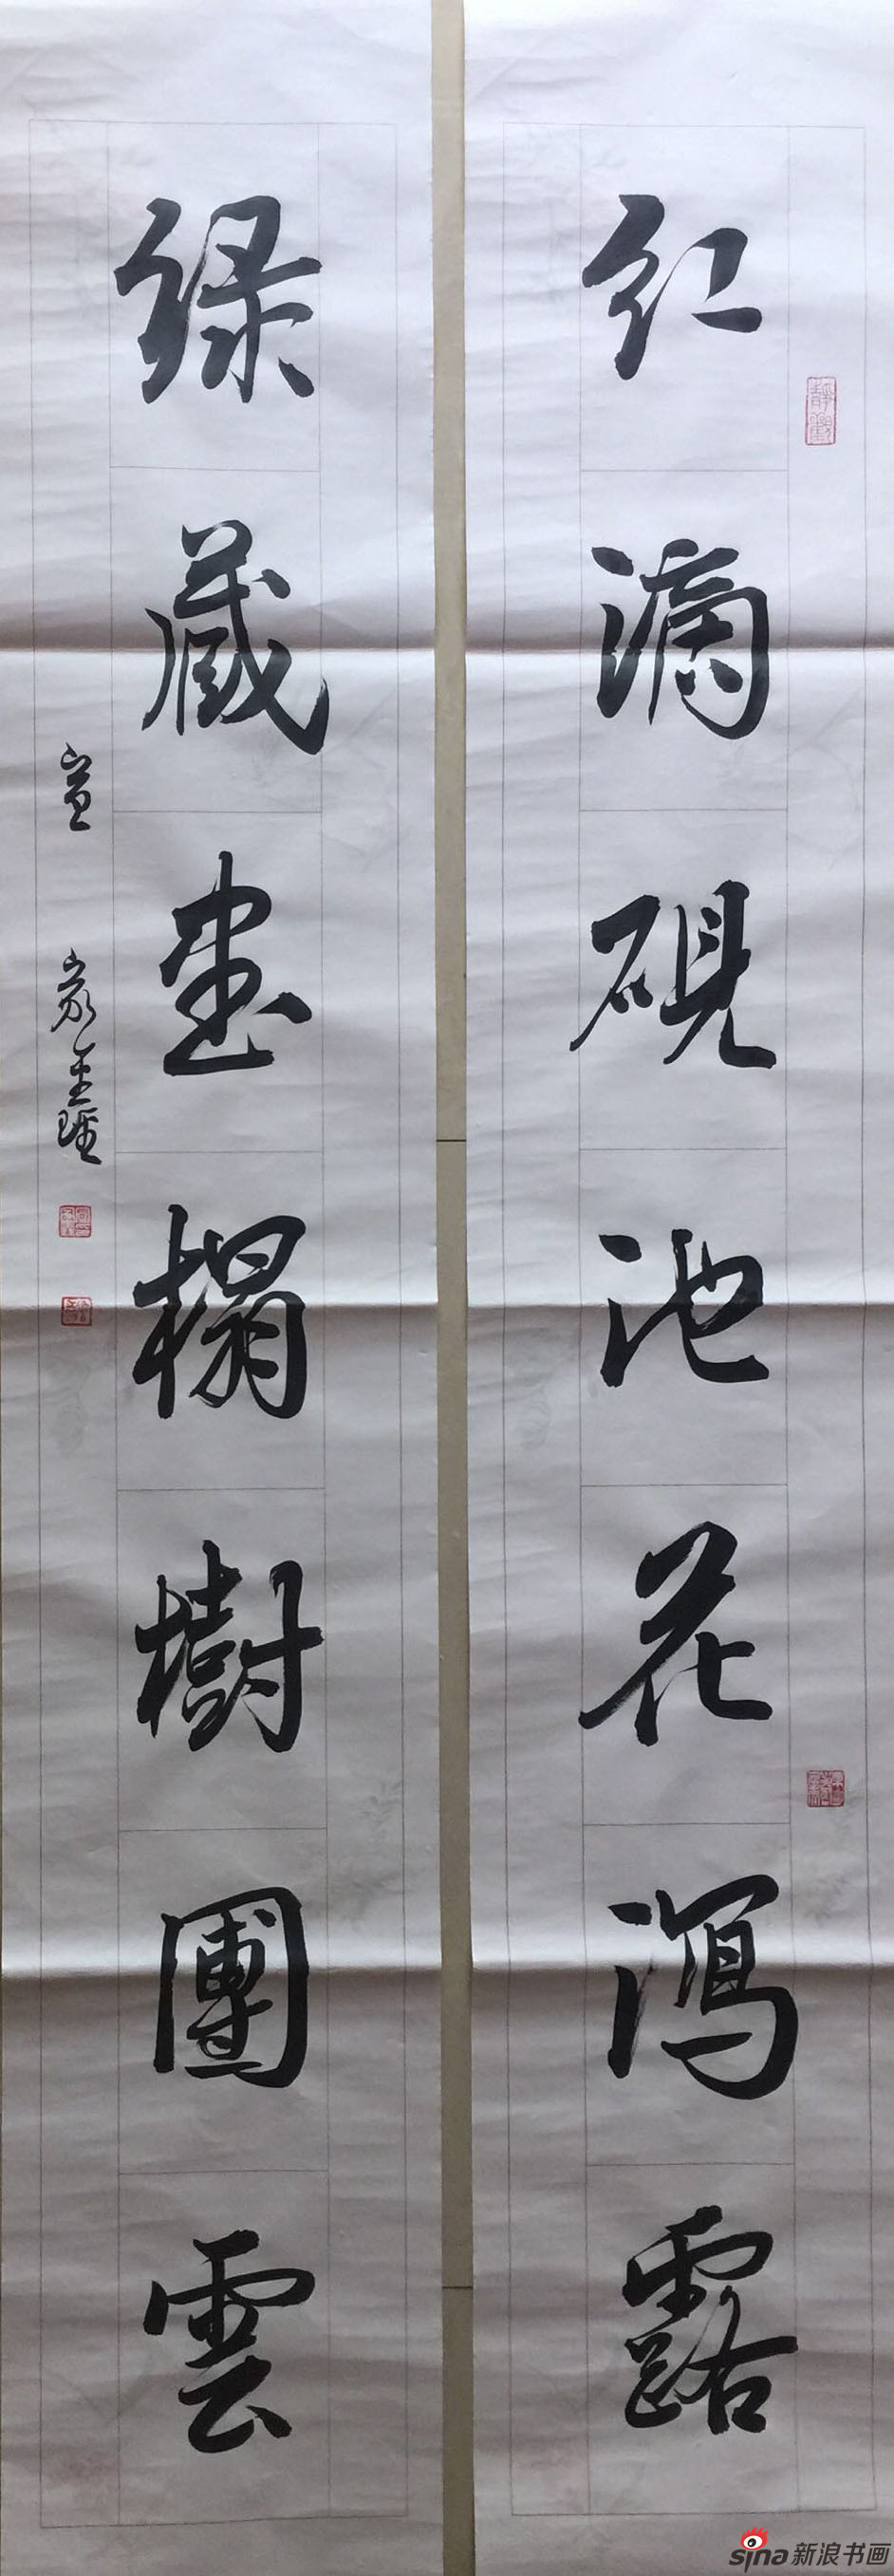 红滴砚池花泻露
绿藏书榻树团云
静观
sina新浪书画